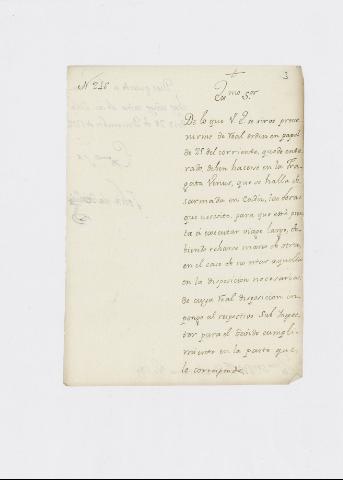 N. 246
3
Exmo. Sor.
De lo que V. E. se sirve preve-
nirme de Real orden en papel
de 25 del corriente, quedo ente-
rado, deben hacerse en la Fra-
gata Venus, que se halla de-
sarmada en Cadiz, las obras
que necesite, para que esté pron-
ta á executar viage largo, de-
biendo echarse mano de otra,
en el caso de no estar aquella
en la disposicion necesaria;
de cuya Real disposicion im-
pongo al respectivo Sub Inspec-
tor para el debido cumpli-
miento en la parte que
le corresponde.